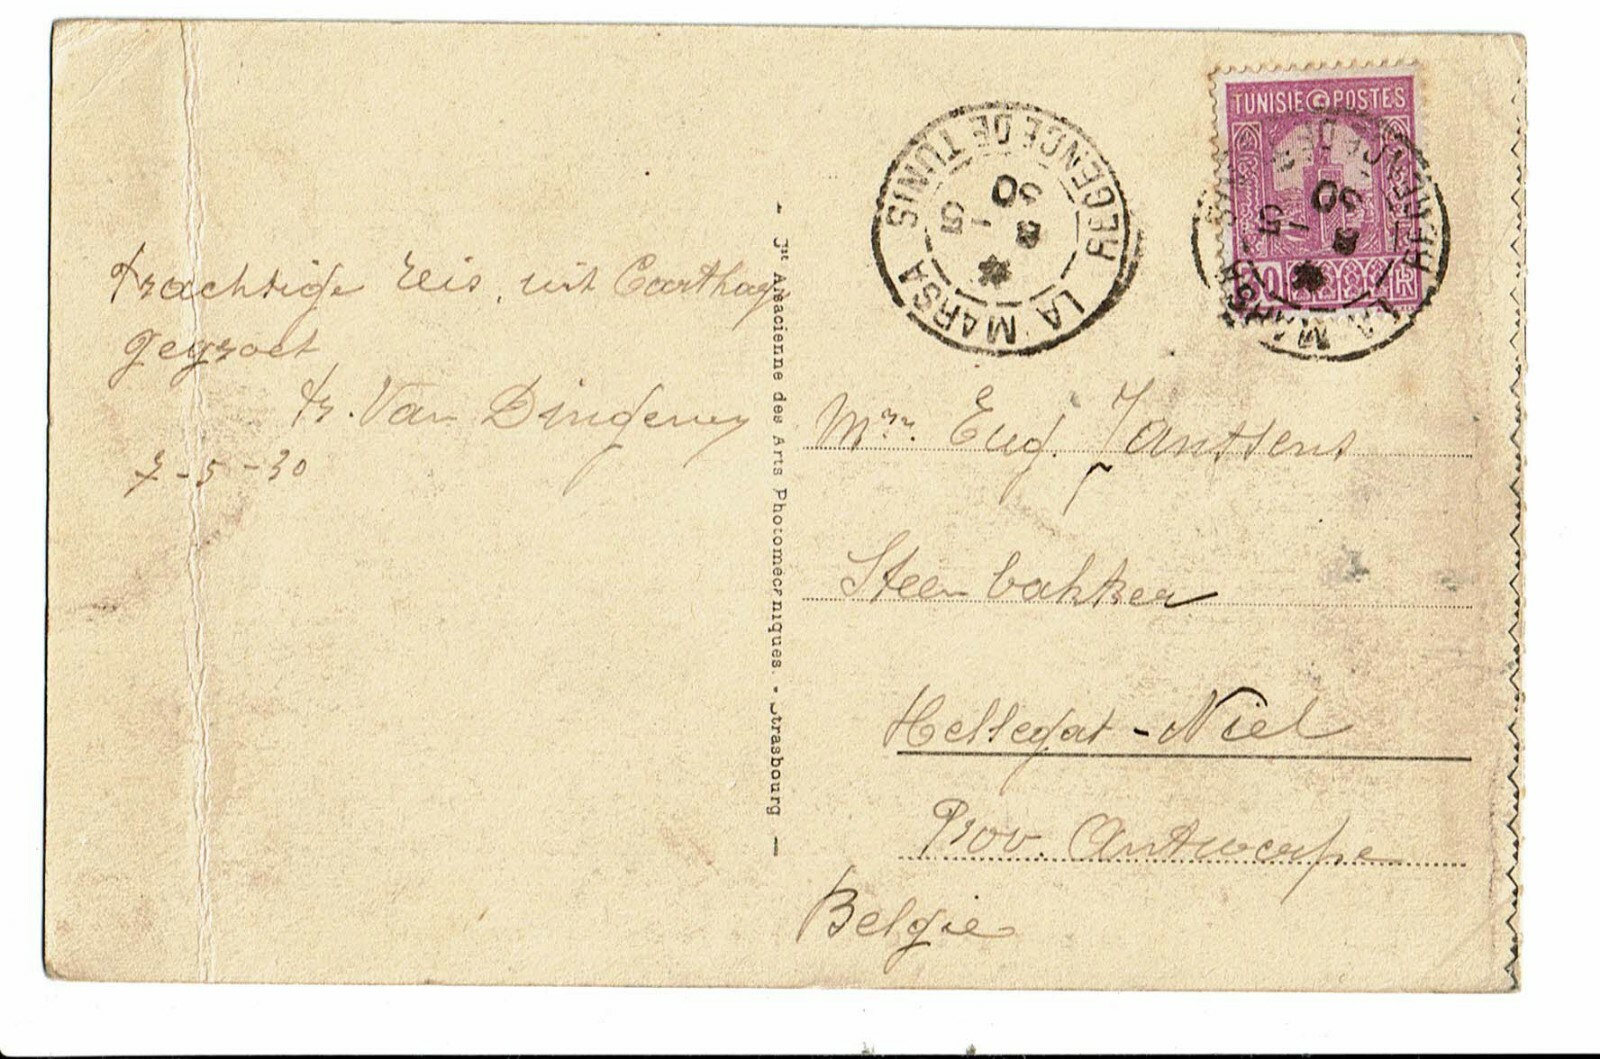 trachtige reis, uit Carthage
gegroet
Fr. Van Dingenen
7-5-30
Jst Alsacienne des Arts Photomécaniques. - Strasbourg
REGENCE DE TUNIS
LA MARSA
5
30
TUNISIE POSTES
REGENCE DE TUNIS
LA MARSA
5
30
0
Mr. Eug. Janssens
Steenbakker
Hellegat - Niel
Prov. Antwerpe
Belgie